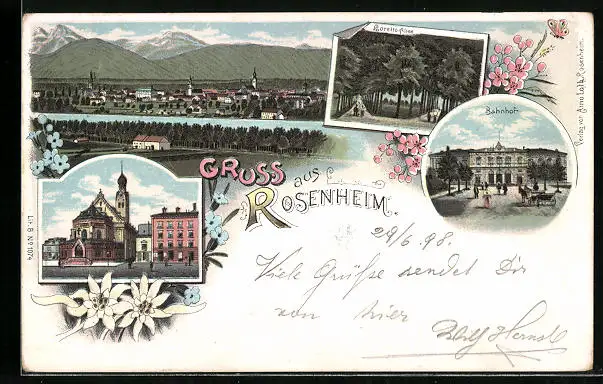 Loretto-Allee
Bahnhof.
Verlag von Anna Lott, Rosenheim.
GRUSS
aus
ROSENHEIM.
Lit. B. No 1074
29/6 98.
Viele Grüße sendet Dir
von hier